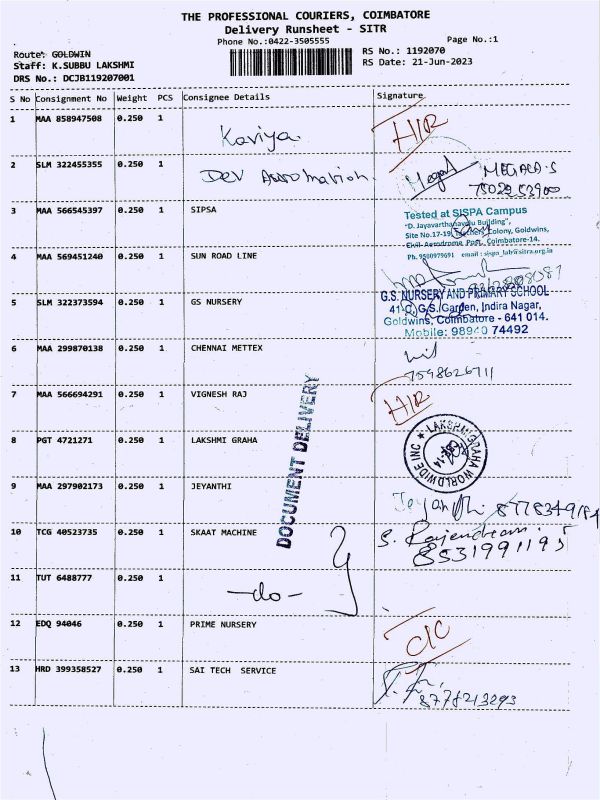 THE PROFESSIONAL COURIERS, COIMBATORE
Delivery Runsheet - SITR
Phone No.:0422-3505555
Page No.:1
Route: GOLDWIN
Staff: K.SUBBU LAKSHMI
DRS No.: DCJB119207001
RS No.: 1192070
RS Date: 21-Jun-2023
S No Consignment No Weight PCS Consignee Details Signature
1 MAA 858947508 0.250 1 Kaviya H/R
2 SLM 322455355 0.250 1 Dev Automation MEGALA.S
3 MAA 566545397 0.250 1 SIPSA
Tested at SISPA Campus
"D. Jayavarthanavelu Building",
Site No.17-19, Colony, Goldwins,
Civil Aerodrome Post, Coimbatore-14.
4 MAA 569451240 0.250 1 SUN ROAD LINE
Ph. 9500979691 email : sispa_lab@sitra.org.in
5 SLM 322373594 0.250 1 GS NURSERY
G.S. NURSERY AND PRIMARY SCHOOL
41-C, G.S. Garden, Indira Nagar,
Goldwins, Coimbatore - 641 014.
Mobile: 98940 74492
6 MAA 299870138 0.250 1 CHENNAI METTEX
7598626711
7 MAA 566694291 0.250 1 VIGNESH RAJ H/R
DOCUMENT DELIVERY
8 PGT 4721271 0.250 1 LAKSHMI GRAHA
LAKSHMI GRAHA WORLDWIDE INC
9 MAA 297902173 0.250 1 JEYANTHI Jeyanthi
10 TCG 40523735 0.250 1 SKAAT MACHINE S. Rajendran
8531991195
11 TUT 6488777 0.250 1 -do-
12 EDQ 94046 0.250 1 PRIME NURSERY C/C
13 HRD 399358527 0.250 1 SAI TECH SERVICE
8778213293